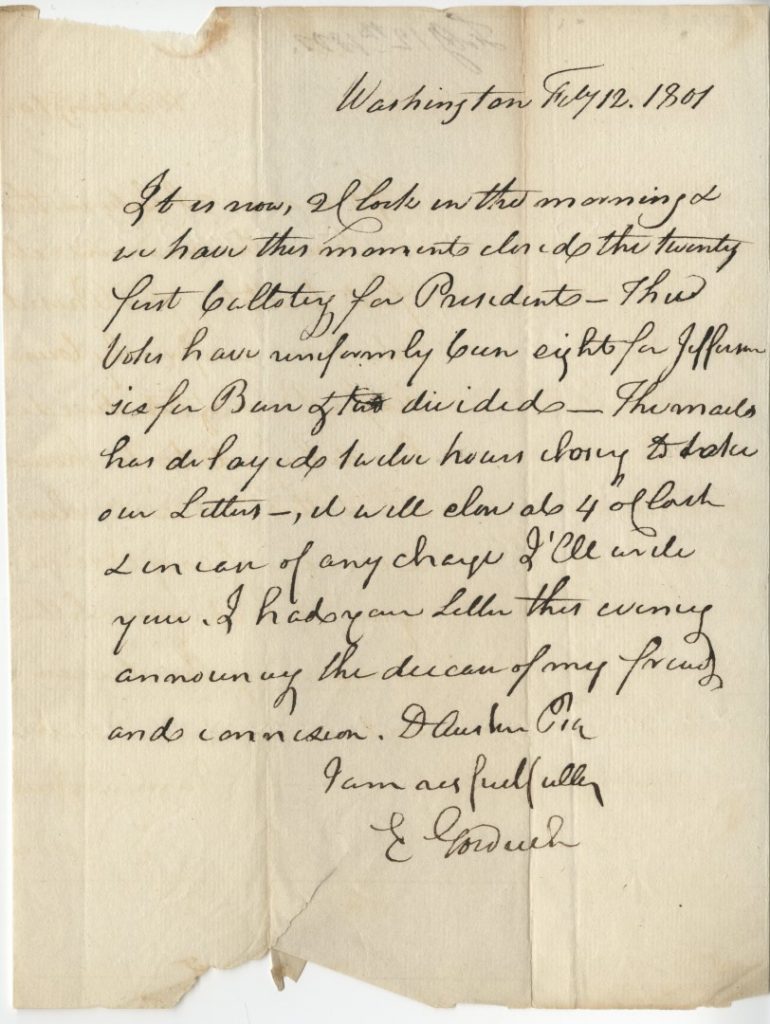 Washington Feby 12. 1801
It is now, 2 Clock in the morning &
we have this moment closed the twenty
first balloting for President – The
Votes have uniformly been eight for Jefferson
six for Burr & two divided – The mail
has delayed twelve hours closing to take
our Letters –, it will close at 4 oClock
& in case of any change I'll write
you. I had your Letter this evening
announcing the decease of my friend
and connexion. D Austin
I am respectfully
E Goodrich